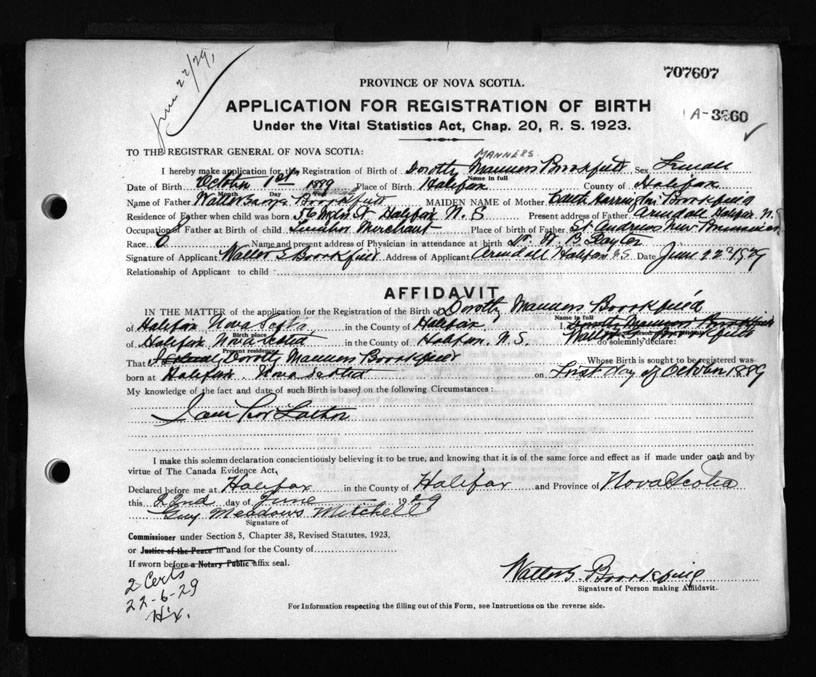 June 22/29,
707607
PROVINCE OF NOVA SCOTIA.
APPLICATION FOR REGISTRATION OF BIRTH
A-3360
Under the Vital Statistics Act, Chap. 20, R. S. 1923.
TO THE REGISTRAR GENERAL OF NOVA SCOTIA:
MANNERS
I hereby make application for the Registration of Birth of Dorothy Manners Brookfield Sex Female
Name in full
Date of Birth October 1st 1889 Place of Birth Halifax County of Halifax
Month Day
Name of Father Walter Brookfield MAIDEN NAME of Mother Edith Harrington Brookfield
Residence of Father when child was born 56 St Halifax N.S Present address of Father Halifax N.S
Occupation of Father at Birth of child Lumber Merchant Place of birth of Father St Andrews New Brunswick
Race Name and present address of Physician in attendance at birth Dr. W. B.
Signature of Applicant Walter S Brookfield Address of Applicant Halifax N.S Date June 22nd 1929
Relationship of Applicant to child
AFFIDAVIT
IN THE MATTER of the application for the Registration of the Birth of Dorothy Manners Brookfield
Name in full
of Halifax Nova Scotia in the County of Halifax I, Dorothy Manners Brookfield
Birth place
of Halifax Nova Scotia in the County of Halifax, N.S. Brookfield do solemnly declare:
Present residence
That Dorothy Manners Brookfield Whose Birth is sought to be registered was
born at Halifax Nova Scotia on First Day of October 1889
My knowledge of the fact and date of such Birth is based on the following Circumstances:
I am her Father
I make this solemn declaration conscientiously believing it to be true, and knowing that it is of the same force and effect as if made under oath and by
virtue of The Canada Evidence Act,
Declared before me at Halifax in the County of Halifax and Province of Nova Scotia
this 22nd day of June 1929
Guy Meadows Mitchell
Signature of
Commissioner under Section 5, Chapter 38, Revised Statutes, 1923,
or Justice of the Peace in and for the County of
If sworn before a Notary Public affix seal.
2 Certs
22-6-29
Hx.
Walter S Brookfield
Signature of Person making Affidavit.
For Information respecting the filling out of this Form, see Instructions on the reverse side.